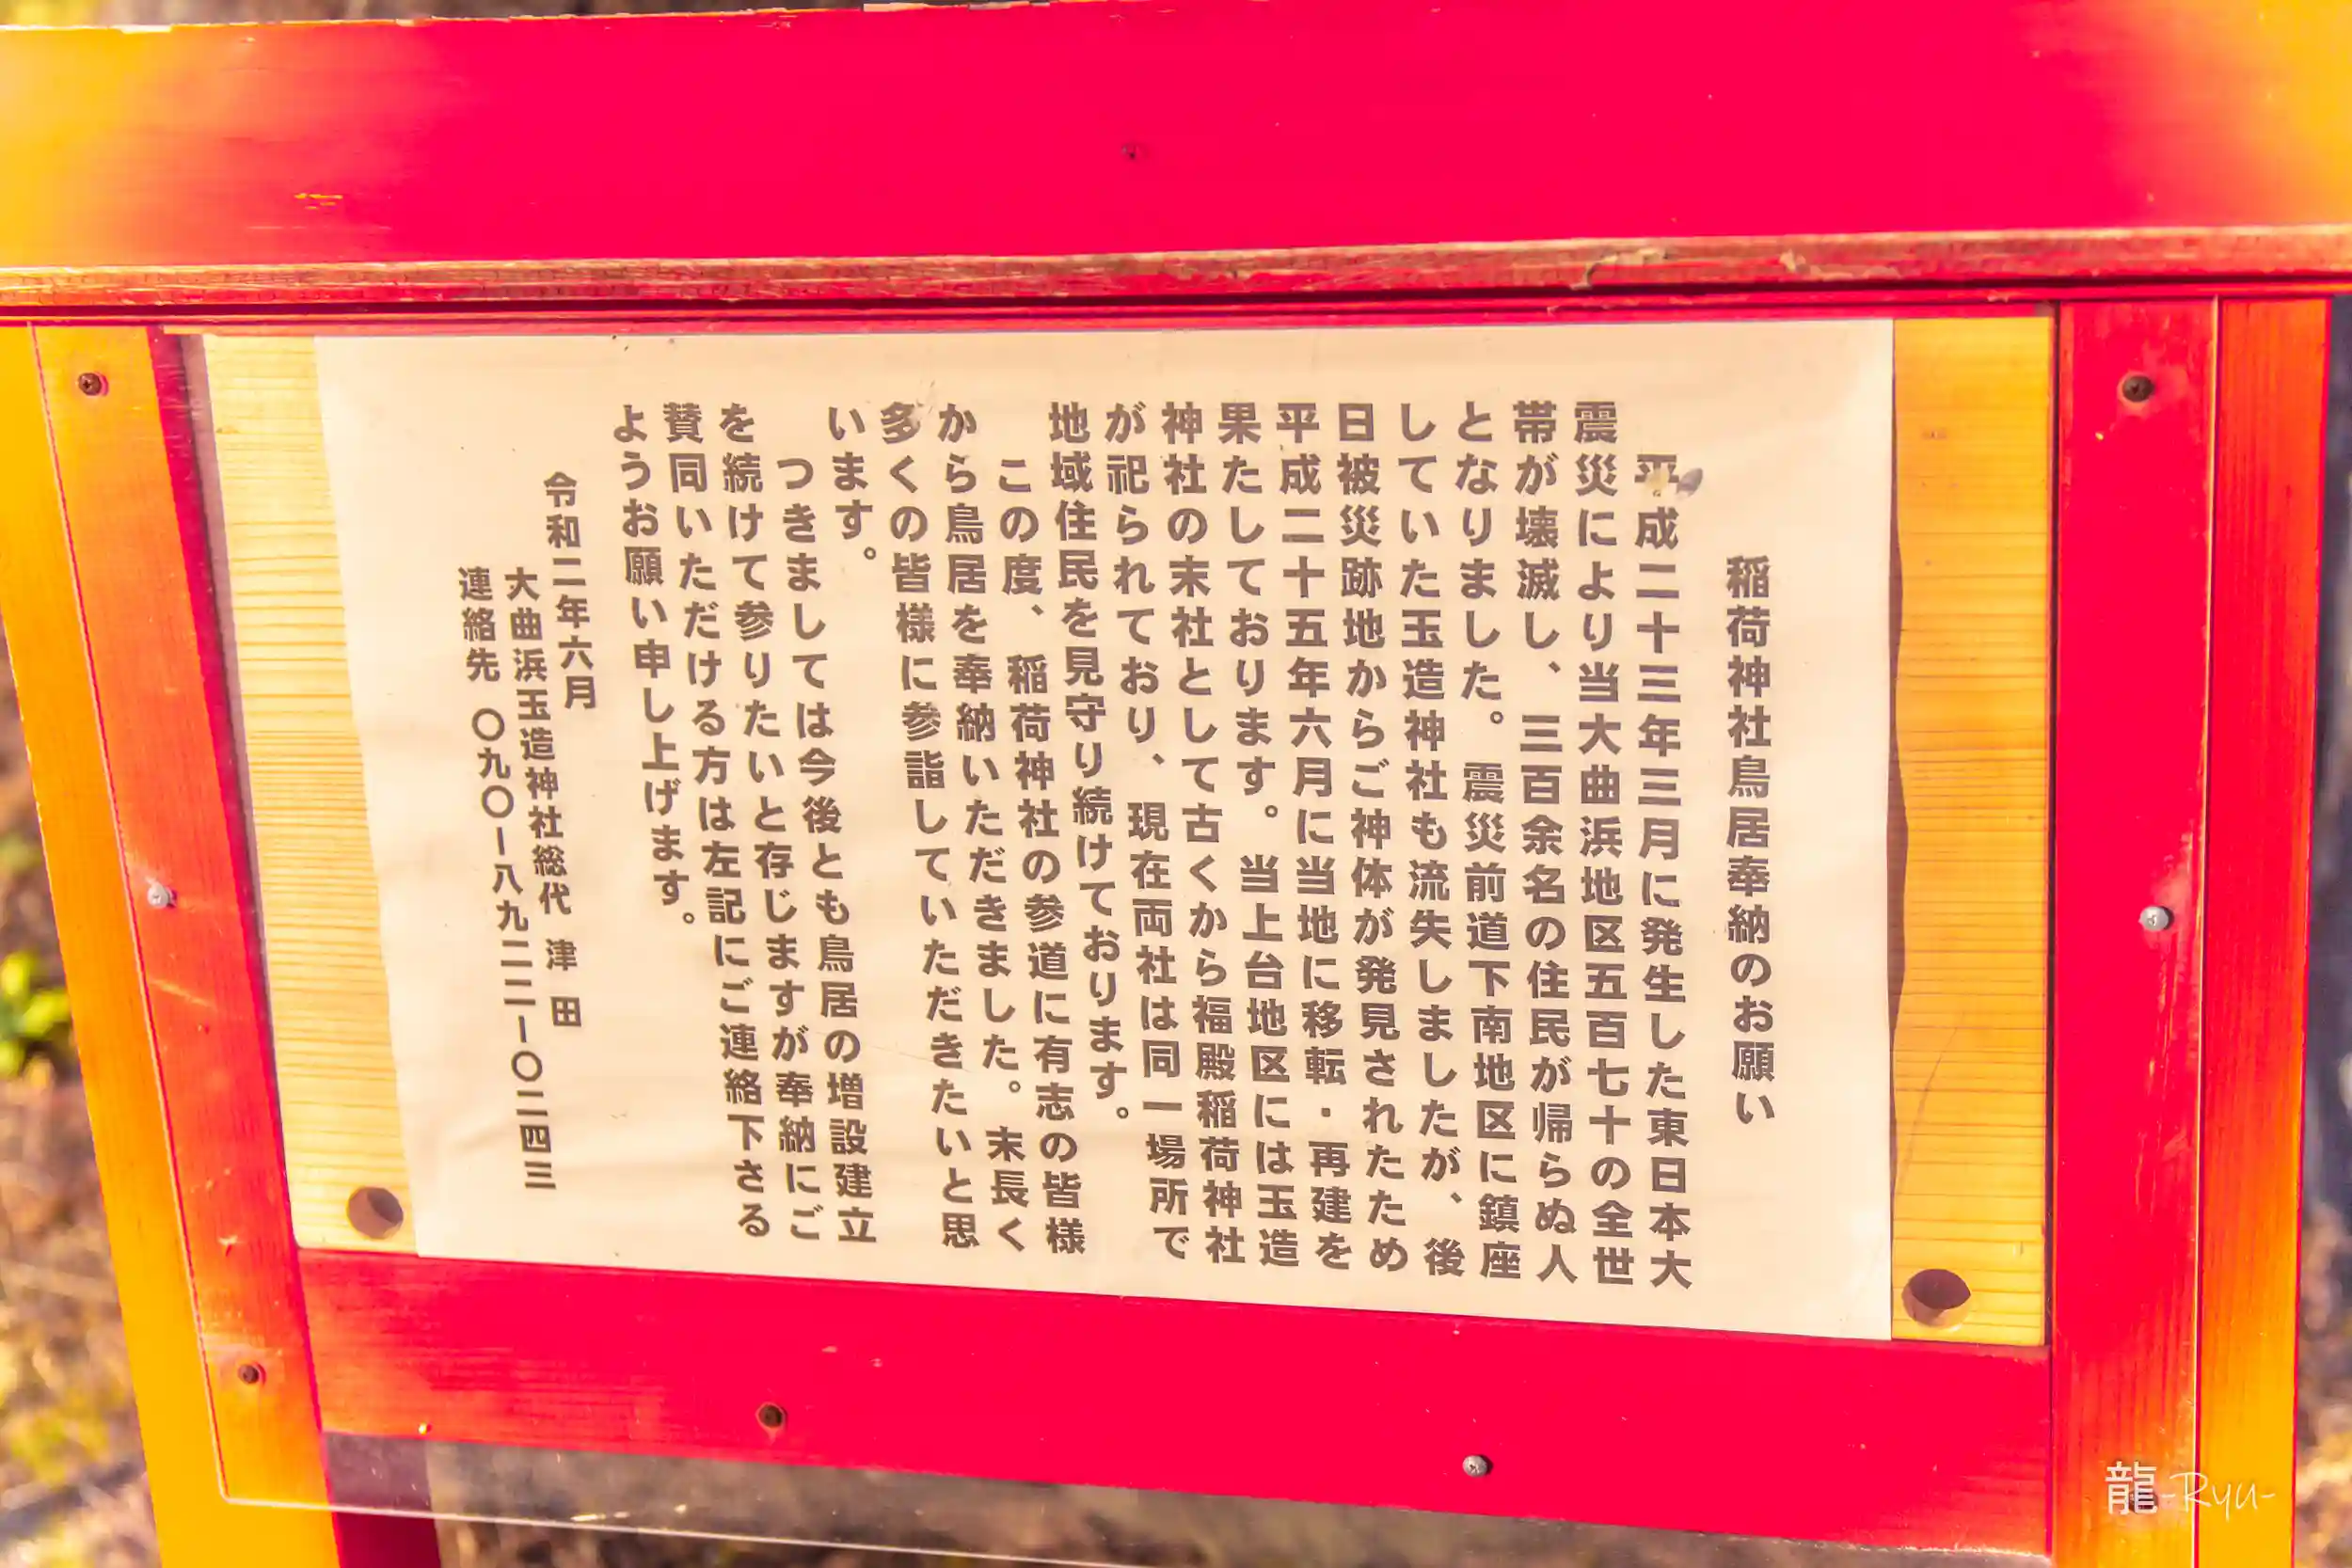 稲荷神社鳥居奉納のお願い
平成二十三年三月に発生した東日本大
震災により当大曲浜地区五百七十の全世
帯が壊滅し、三百余名の住民が帰らぬ人
となりました。震災前道下南地区に鎮座
していた玉造神社も流失しましたが、後
日被災跡地からご神体が発見されたため
平成二十五年六月に当地に移転・再建を
果たしております。当上台地区には玉造
神社の末社として古くから福殿稲荷神社
が祀られており、現在両社は同一場所で
地域住民を見守り続けております。
この度、稲荷神社の参道に有志の皆様
から鳥居を奉納いただきました。末長く
多くの皆様に参詣していただきたいと思
います。
つきましては今後とも鳥居の増設建立
を続けて参りたいと存じますが奉納にご
賛同いただける方は左記にご連絡下さる
ようお願い申し上げます。
令和二年六月
大曲浜玉造神社総代 津田
連絡先 〇九〇ー八九二二ー〇二四三
龍-Ryu-